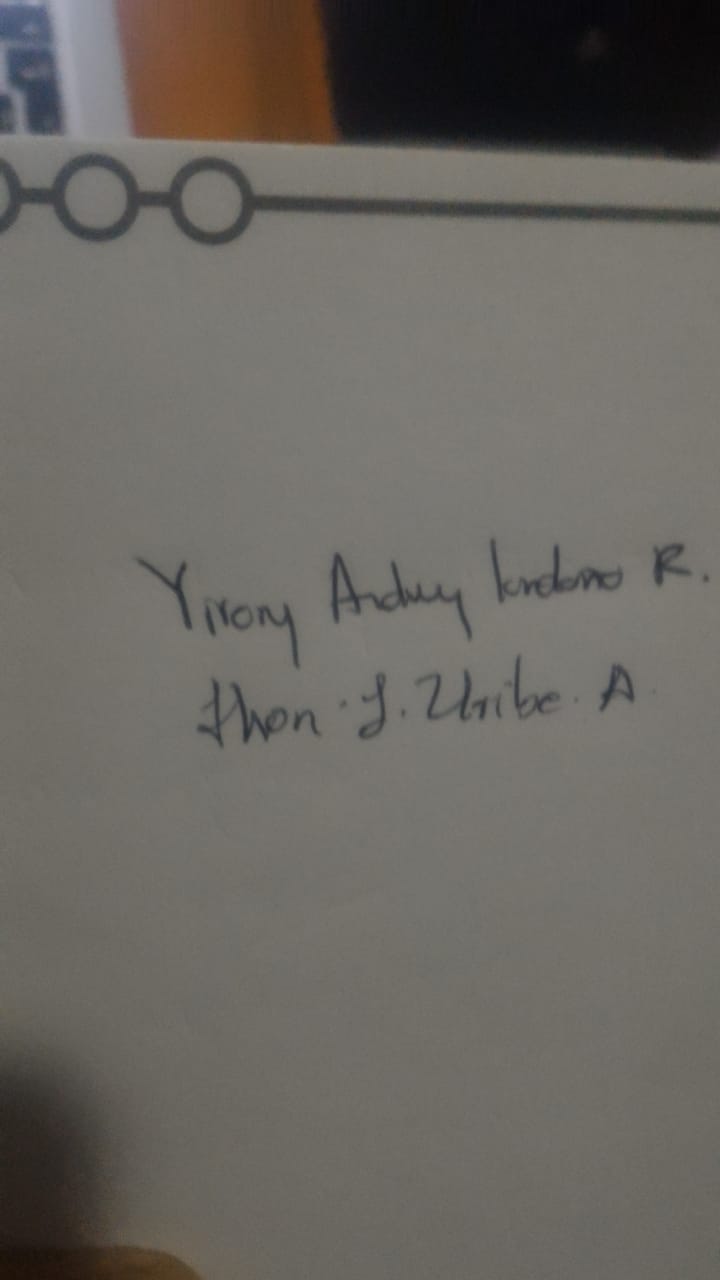 Yirony Andrey londono R.
Jhon. J. Uribe. A.